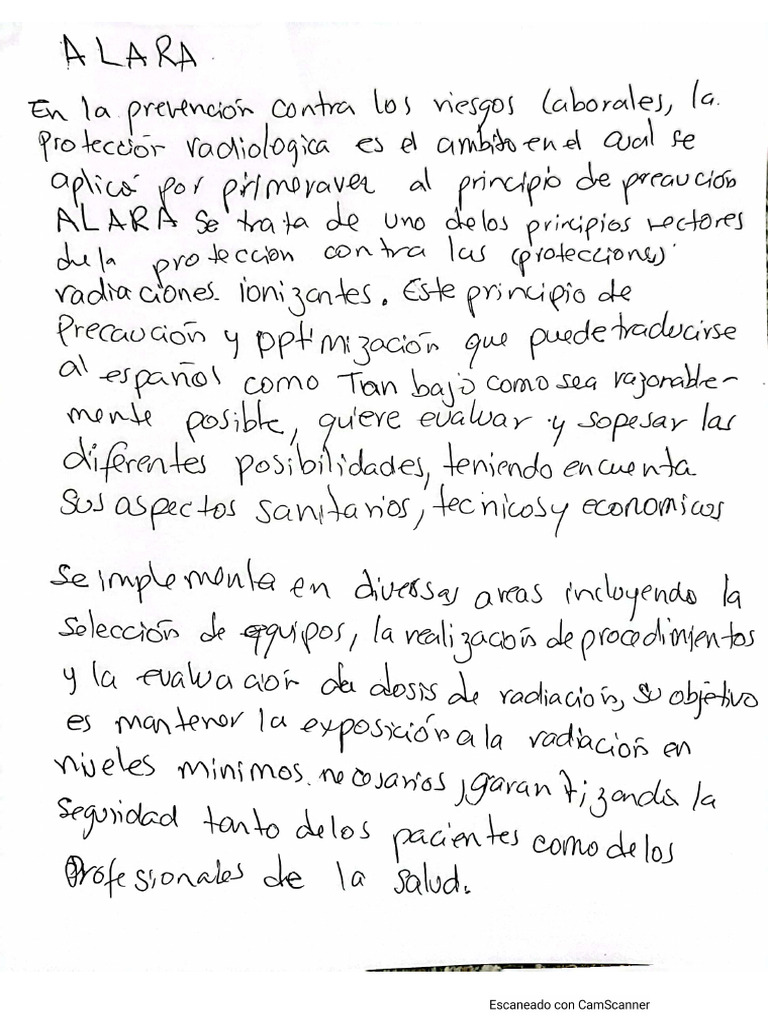 ALARA
En la prevención contra los riesgos laborales, la
protección radiologica es el ambito en el cual se
aplicó por primeraver al principio de precaución
ALARA Se trata de uno delos principios rectores
de la protección contra las (protecciones)
radiaciones ionizantes. Este principio de
Precaución y optimización que puede traducirse
al español como Tan bajo como sea razonable-
mente posible, quiere evaluar y sopesar las
diferentes posibilidades, teniendo en cuenta
sus aspectos sanitarios, tecnicos y economicos
Se implementa en diversas areas incluyendo la
Selección de equipos, la realización de procedimientos
y la evaluación de dosis de radiación, su objetivo
es mantener la exposición a la radiación en
niveles minimos necesarios, garantizando la
seguridad tanto delos pacientes como de los
Profesionales de la salud.
Escaneado con CamScanner